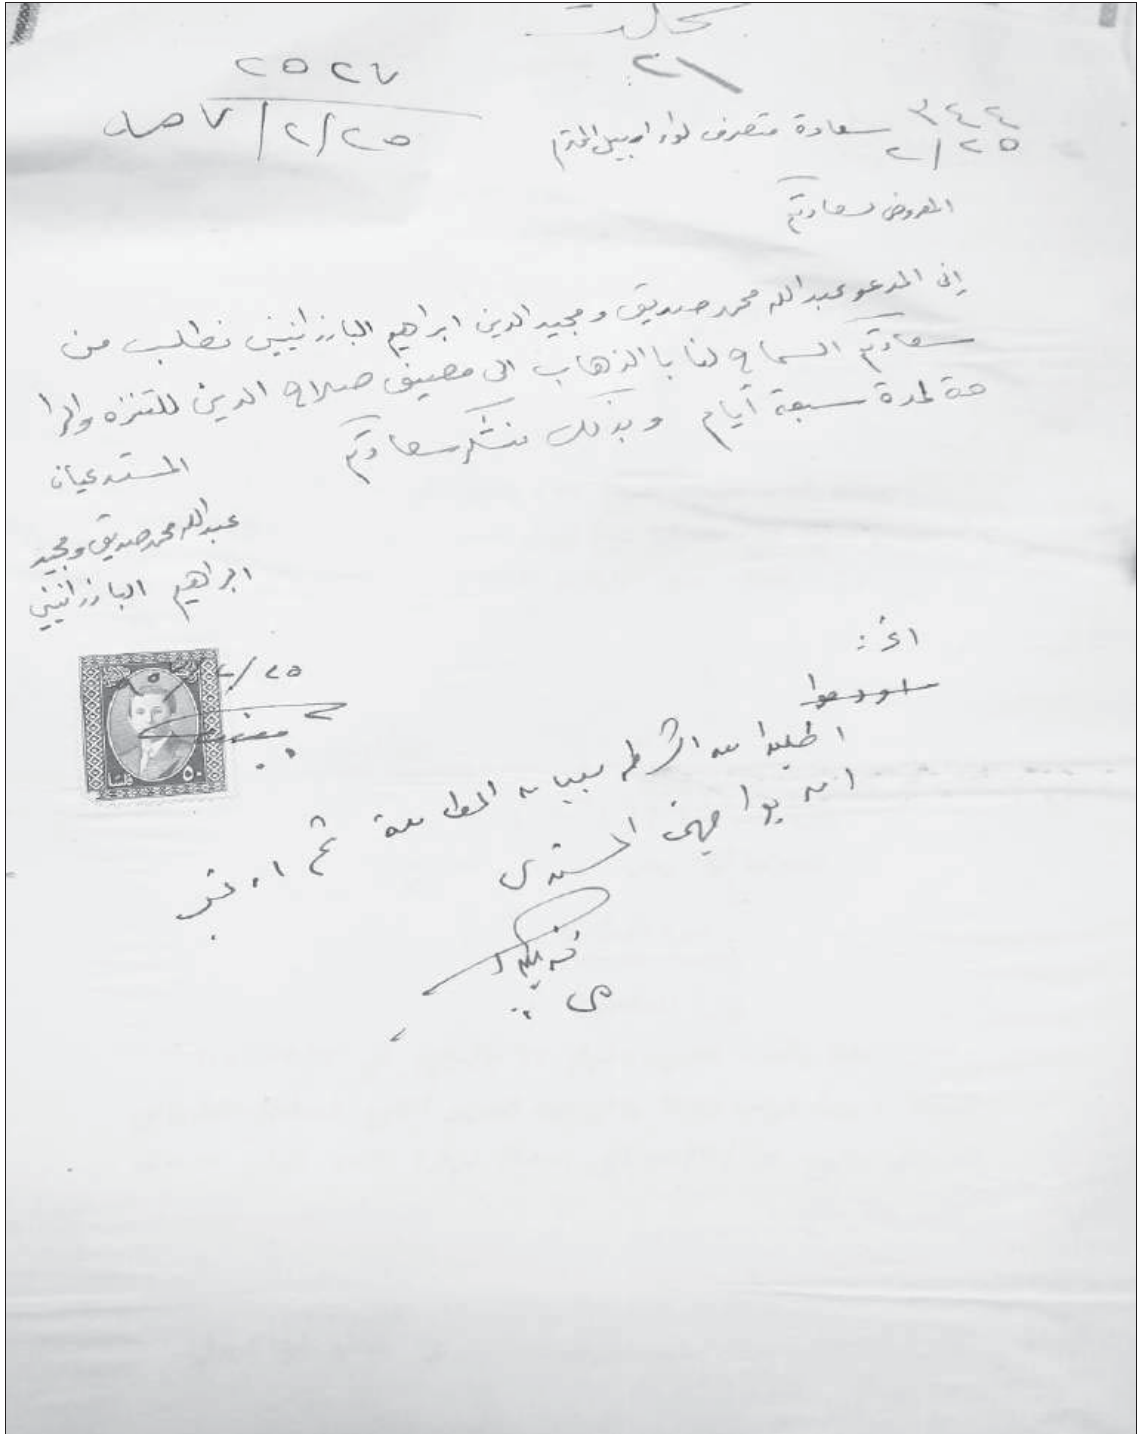 سجلت
٢٥٢٧
٢٥/٢/٧
٣٤٤
٢٥/٢
سعادة متصرف لواء اربيل المحترم
المعروض لسعادتكم
إني المدعو عبدالله محمد صديق ومجيد الدين ابراهيم البارزانيين نطلب من
سعادتكم السماح لنا بالذهاب الى مصيف صلاح الدين للتنزه والرا
حة لمدة سبعة أيام وبذلك نشكر سعادتكم
المستدعيان
عبدالله محمد صديق ومجيد
ابراهيم البارزانيين
٢٥/٢
٥٠ فلسا
اطلبوا من الشرطة بيان المطالعة ثم
المستدعى